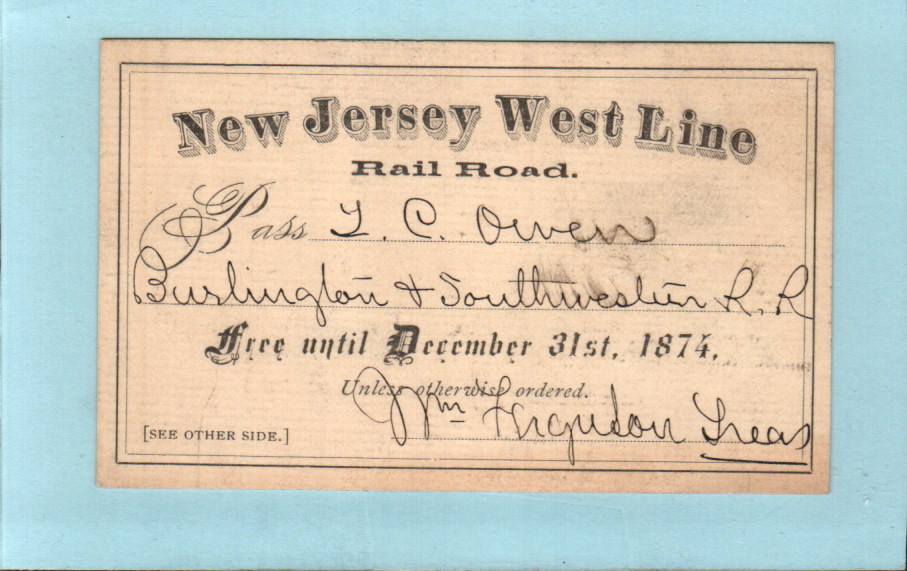 New Jersey West Line
Rail Road.
Pass L. C. Owen
Burlington & Southwestern R. R
Free until December 31st, 1874,
Unless otherwise ordered.
[SEE OTHER SIDE.]
Wm Ferguson Treas